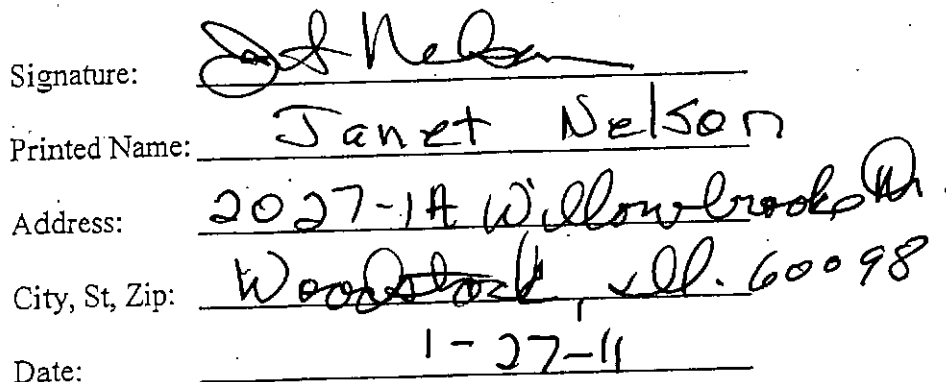 Signature: Jant Nelson
Printed Name: Janet Nelson
Address: 2027-1A Willowbrooke Dr.
City, St, Zip: Woodstock, Ill. 60098
Date: 1-27-11